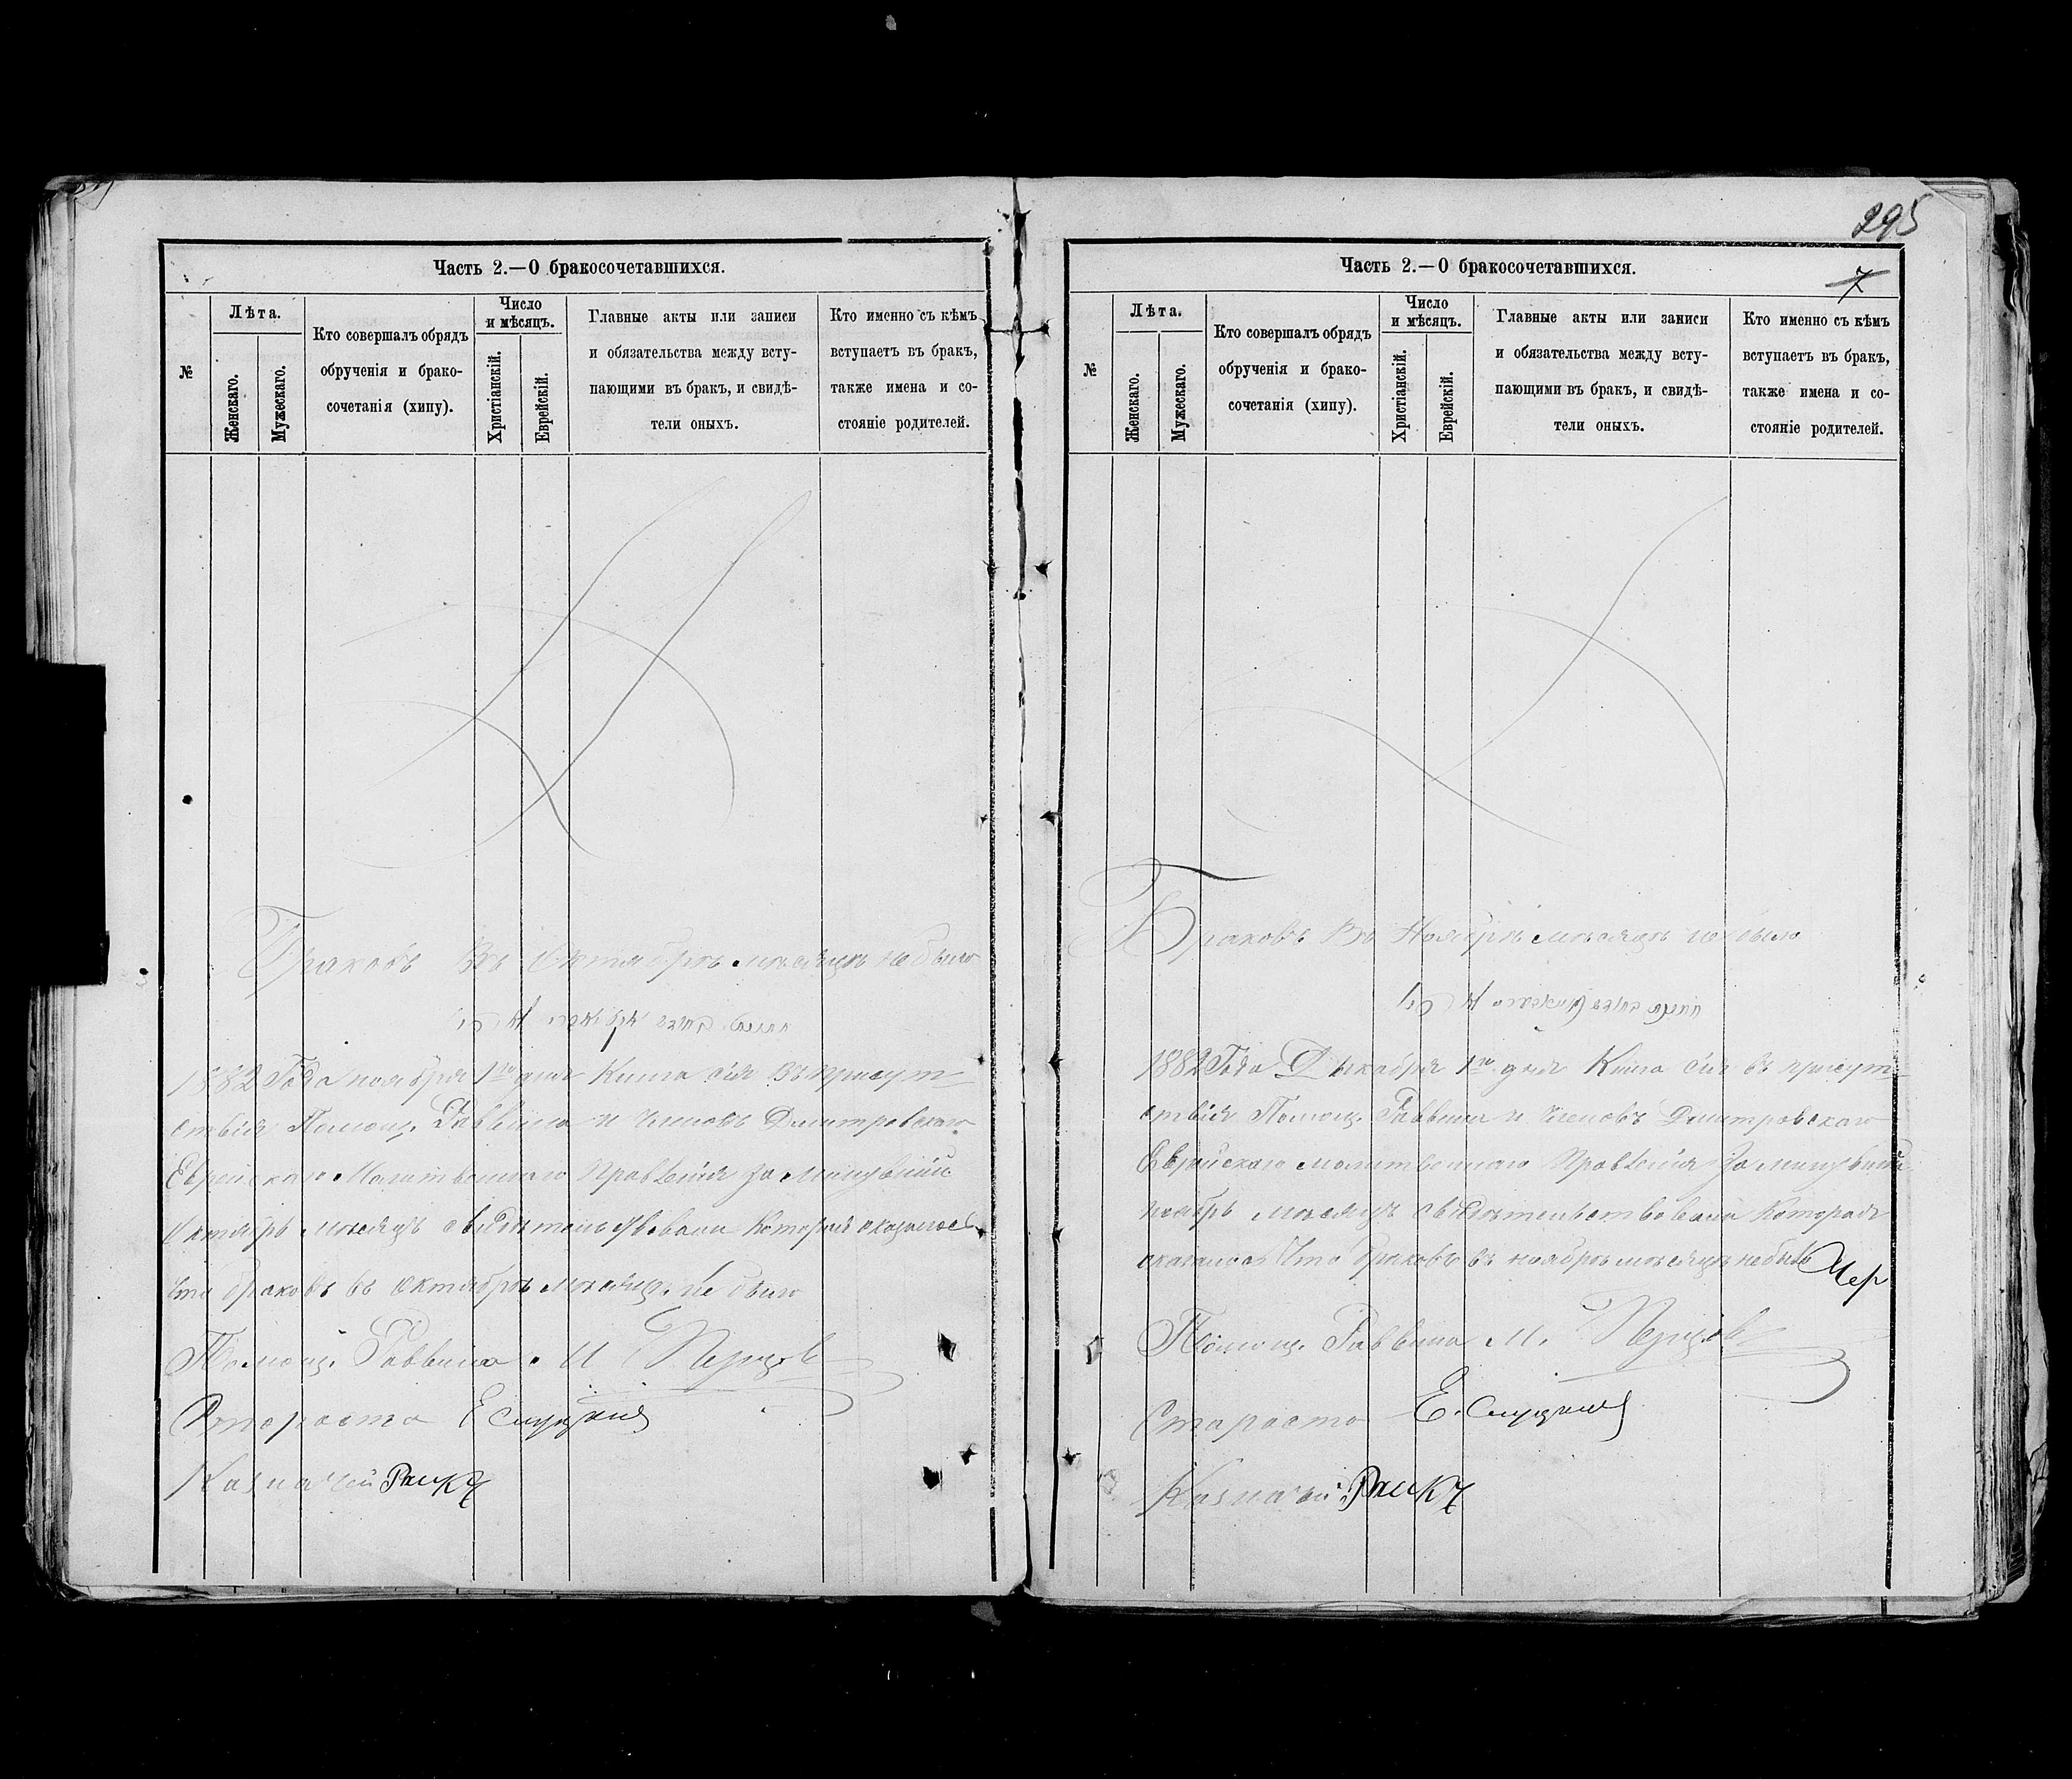 Часть 2.—О бракосочетавшихся.
№
Лѣта.
Женскаго.
Мужескаго.
Кто совершалъ обрядъ
обрученія и брако-
сочетанія (хипу).
Число
и мѣсяцъ.
Христіанскій.
Еврейскій.
Главные акты или записи
и обязательства между всту-
пающими въ бракъ, и свидѣ-
тели оныхъ.
Кто именно съ кѣмъ
вступаетъ въ бракъ,
также имена и со-
стояніе родителей.
Браковъ Въ Октябрѣ мѣсяцѣ не было
1882 Года ноября 1го дня Книга сія Въ присут
ствіи Помощ. Раввина и членовъ Дмитровскаго
Еврейскаго Молитвеннаго Правленія За минувшій
Октябрь мѣсяцъ свидѣтельствована Которой оказалось
что браковъ въ октябрѣ мѣсяцѣ не было
Помощ. Раввина М Перцов
Староста Е Слуцкий
Казначей
295
7
Часть 2.—О бракосочетавшихся.
№
Лѣта.
Женскаго.
Мужескаго.
Кто совершалъ обрядъ
обрученія и брако-
сочетанія (хипу).
Число
и мѣсяцъ.
Христіанскій.
Еврейскій.
Главные акты или записи
и обязательства между всту-
пающими въ бракъ, и свидѣ-
тели оныхъ.
Кто именно съ кѣмъ
вступаетъ въ бракъ,
также имена и со-
стояніе родителей.
Браковъ Въ Ноябрѣ мѣсяцѣ не было
1882 Года Декабря 1го дня Книга сія въ присут
ствіи Помощ. Раввина и членовъ Дмитровскаго
Еврейскаго молитвеннаго Правленія За минувшій
ноябрь мѣсяцъ свидѣтельствована Которая
оказалось Что браковъ въ ноябрѣ мѣсяцѣ не было
Помощ. Раввина М. Перцов
Староста Е. Слуцкий
Казначей